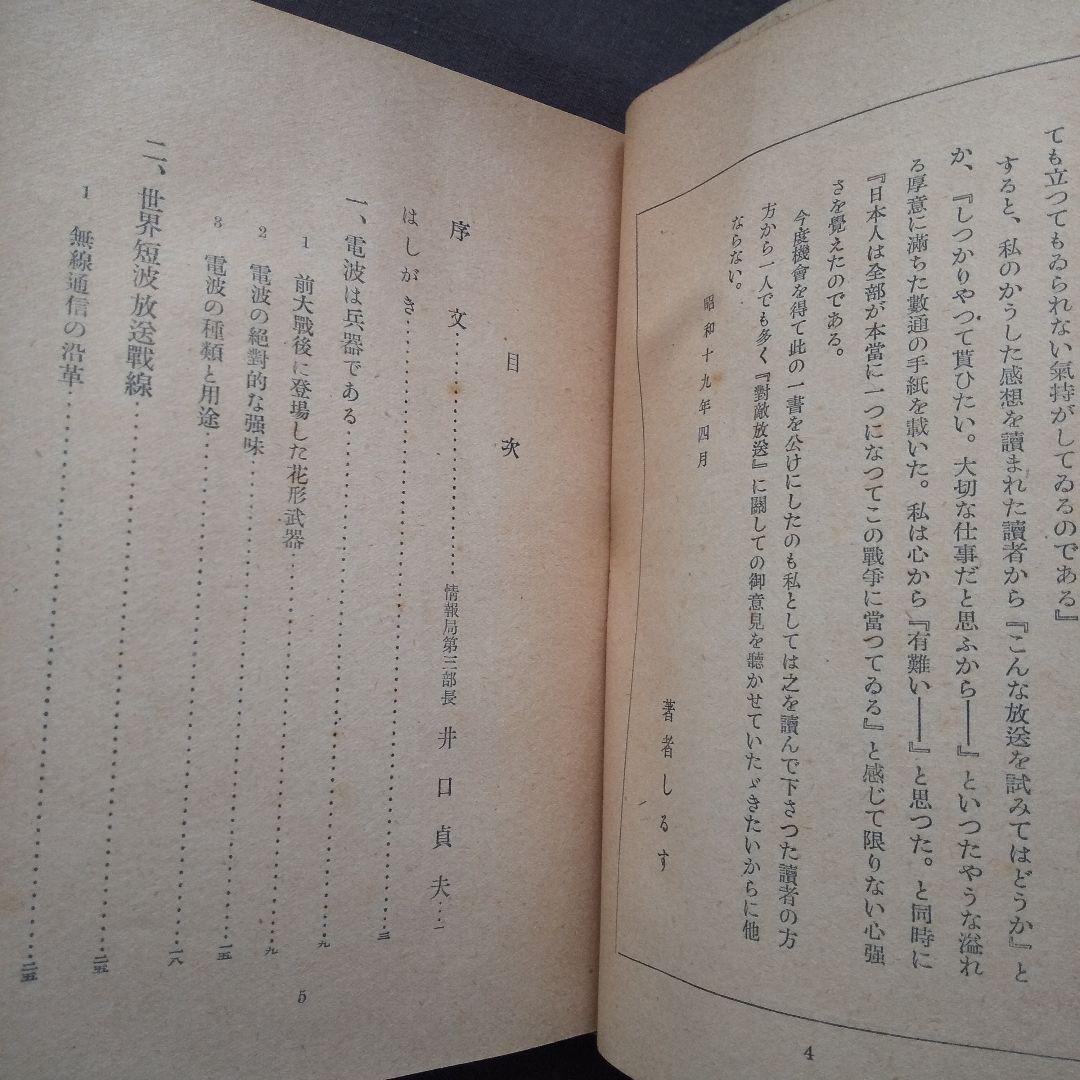 ても立つてもゐられない氣持がしてゐるのである』
すると、私のかうした感想を讀まれた讀者から『こんな放送を試みてはどうか』と
か、『しつかりやつて貰ひたい。大切な仕事だと思ふから――』といつたやうな溢れ
る厚意に滿ちた數通の手紙を戴いた。私は心から『有難い――』と思つた。と同時に
『日本人は全部が本當に一つになつてこの戰爭に當つてゐる』と感じて限りない心强
さを覺えたのである。
今度機會を得て此の一書を公けにしたのも私としては之を讀んで下さつた讀者の方
方から一人でも多く『對敵放送』に關しての御意見を聽かせていたゞきたいからに他
ならない。
昭和十九年四月
著者しるす
4
目次
序文……………情報局第三部長 井口貞夫…一
はしがき……………三
一、電波は兵器である……………九
1 前大戰後に登場した花形武器……………九
2 電波の絕對的な强味……………一五
3 電波の種類と用途……………一八
二、世界短波放送戰線……………二五
1 無線通信の沿革……………二五
5